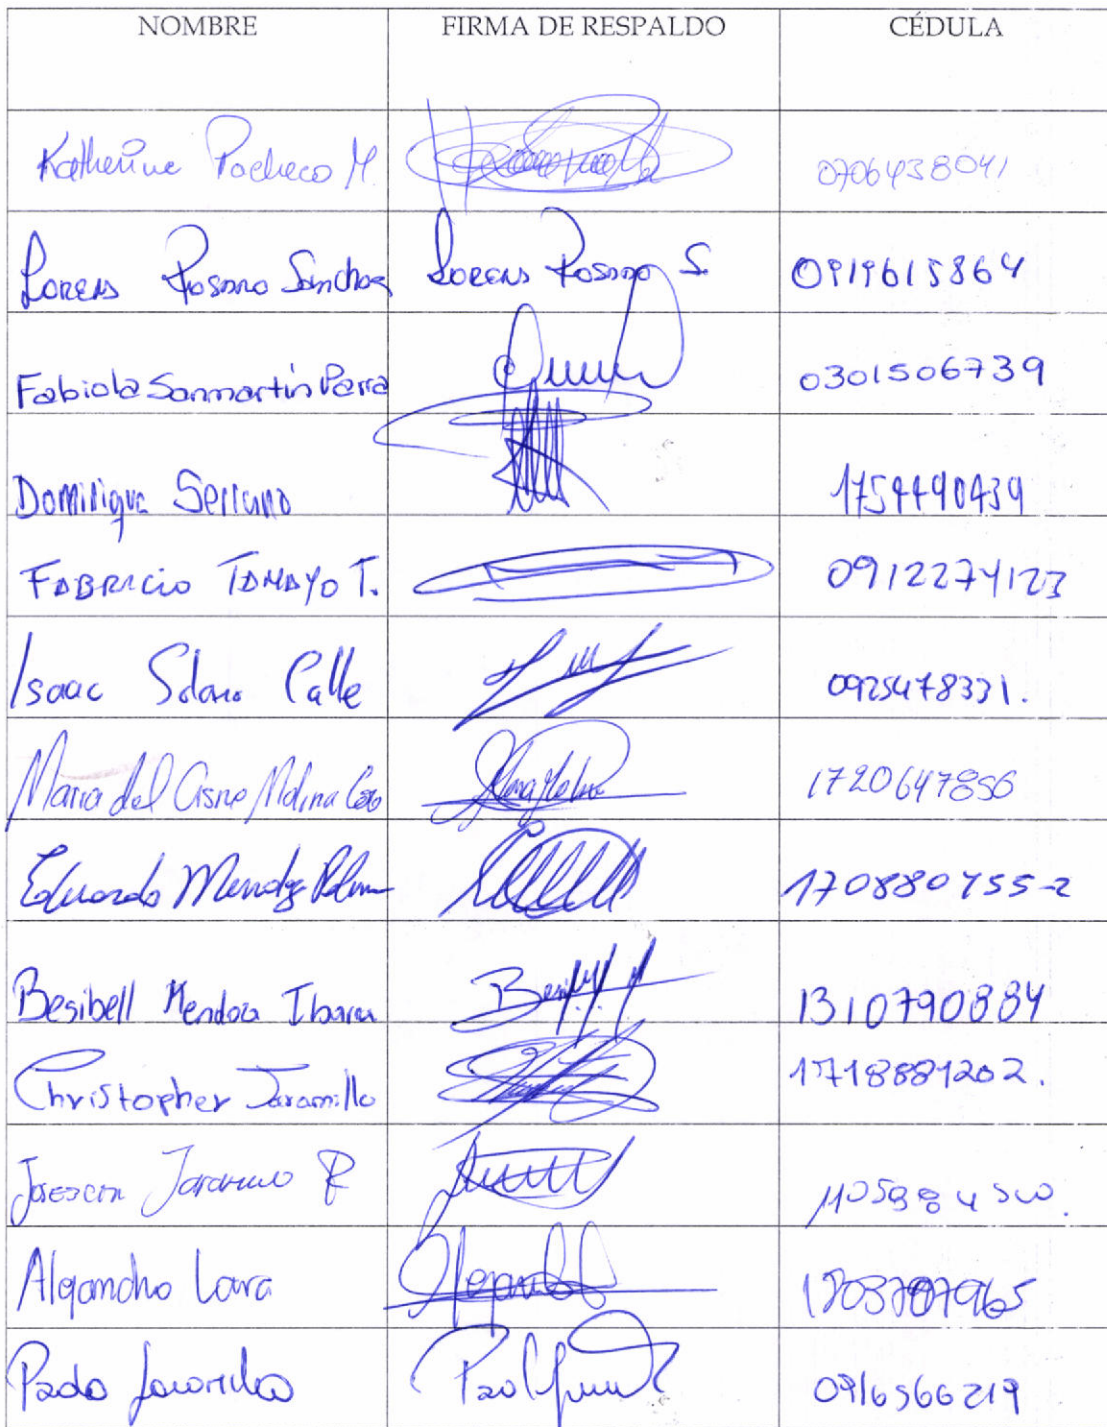 NOMBRE FIRMA DE RESPALDO CÉDULA
Katherine Pacheco M. 0706438041
Lorens Rosero Sanchez Lorens Rosero S. 0919615864
Fabiola Sanmartín Parra 0301506739
Dominique Serrano 1754490439
FABRICIO TAMAYO T. 0912274123
Isaac Solano Calle 0925478331.
Maria del Cisne Molina 1720647856
Eduardo Mendez 170880755-2
Besibell Mendoza Ibarra 1310790884
Christopher Jaramillo 1718881202.
Jaramillo R
Alejandro Lara
Paolo Jaramillo 0916566219